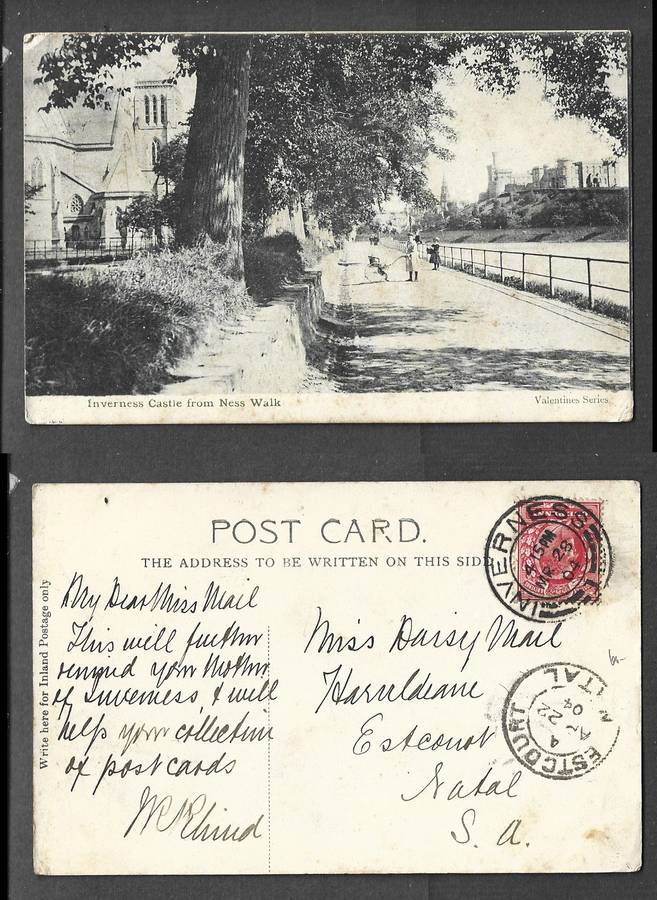 Inverness Castle from Ness Walk
Valentines Series
POST CARD.
THE ADDRESS TO BE WRITTEN ON THIS SIDE
Write here for Inland Postage only
My Dear Miss Mail
This will further
remind your Mother
of Inverness, & will
help your collection
of postcards
Miss Daisy Mail
Estcourt
Natal
S. A.
INVERNESS
4 15 PM
MR 28
04
ESTCOURT NATAL
4
AP 22
04